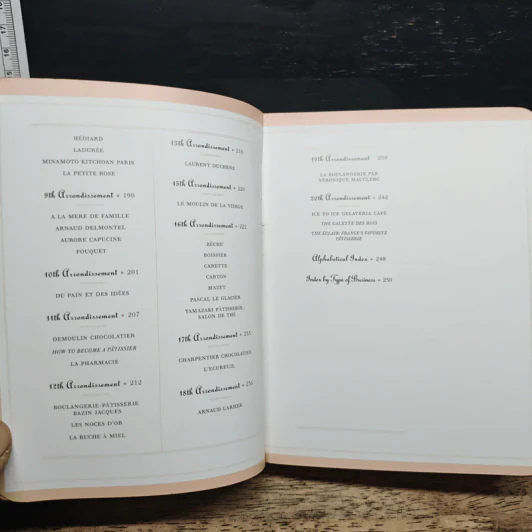 HÉDIARD
LADURÉE
MINAMOTO KITCHOAN PARIS
LA PETITE ROSE
9th Arrondissement • 190
A LA MERE DE FAMILLE
ARNAUD DELMONTEL
AURORE CAPUCINE
FOUQUET
10th Arrondissement • 201
DU PAIN ET DES IDÉES
11th Arrondissement • 207
DEMOULIN CHOCOLATIER
HOW TO BECOME A PÂTISSIER
LA PHARMACIE
12th Arrondissement • 212
BOULANGERIE-PÂTISSERIE
BAZIN JACQUES
LES NOCES D'OR
LA RUCHE À MIEL
13th Arrondissement •
LAURENT DUCHÊNE
15th Arrondissement •
LE MOULIN DE LA VIERGE
16th Arrondissement •
BÉCHU
BOISSIER
CARETTE
CARTON
MAZET
PASCAL LE GLACIER
YAMAZAKI PATISSERIE,
SALON DE THÉ
17th Arrondissement •
CHARPENTIER CHOCOLATIER
L'ECUREUIL
18th Arrondissement •
ARNAUD LARHER
19th Arrondissement 239
LA BOULANGERIE PAR
VÉRONIQUE MAUCLERC
20th Arrondissement • 242
ICE TO ICE GELATERIA CAFÉ
THE GALETTE DES ROIS
THE ÉCLAIR: FRANCE'S FAVORITE
PÂTISSERIE
Alphabetical Index • 248
Index by Type of Business • 250